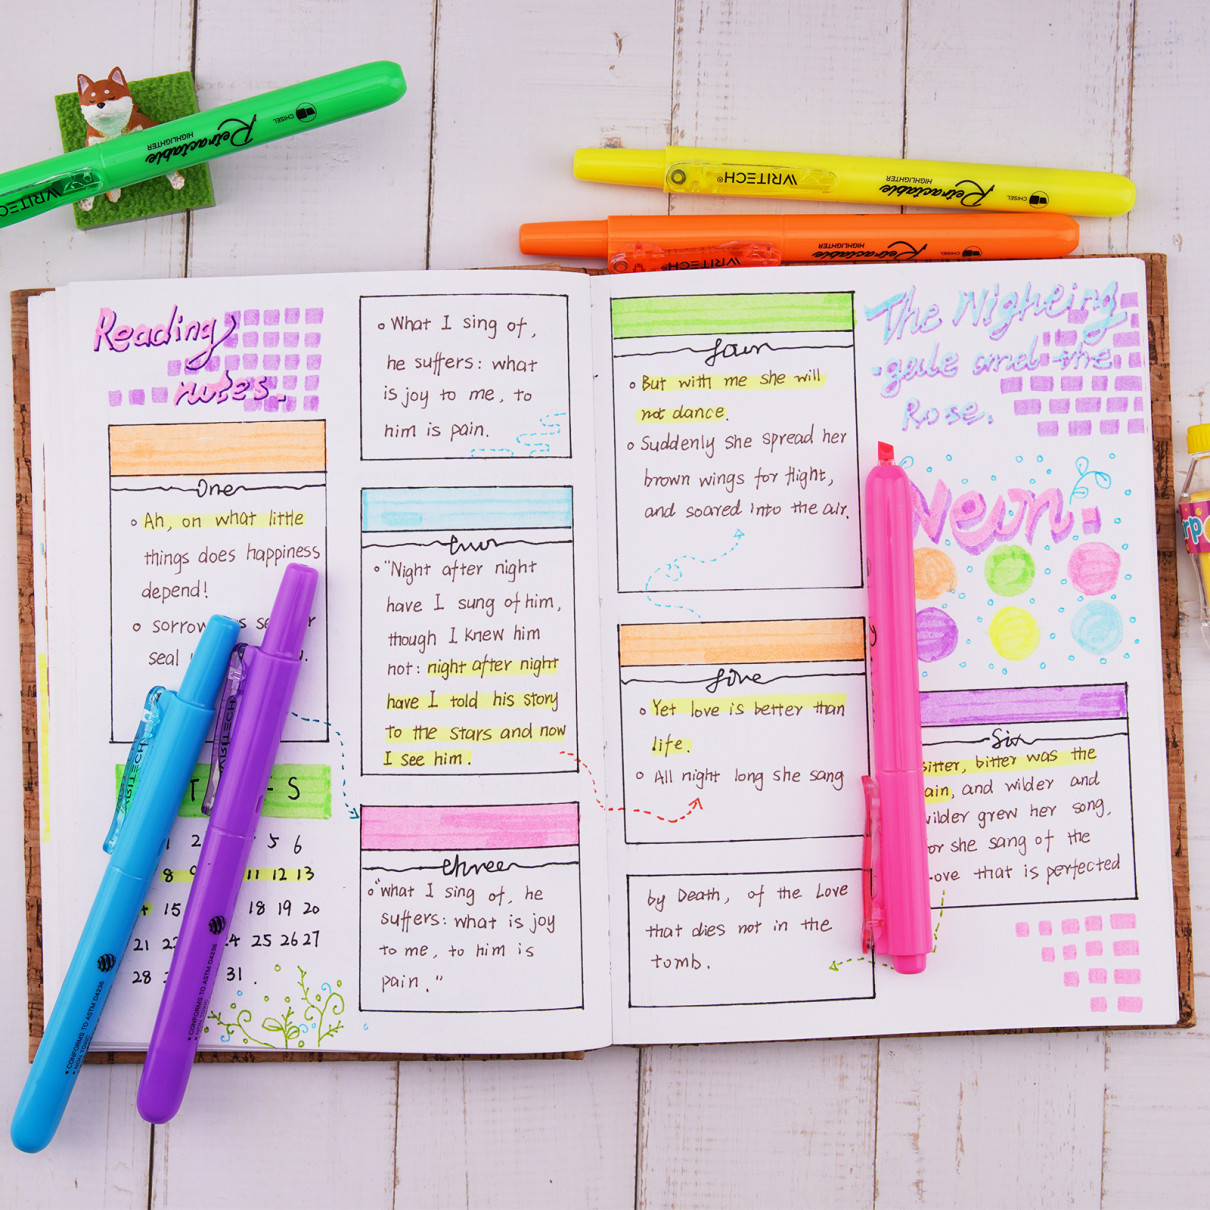 Retractable
HIGHLIGHTER
CHISEL
WRITECH
WRITECH®
Retractable
HIGHLIGHTER
CHISEL
WRITECH
Retractable
HIGHLIGHTER
CHISEL
Reading
notes.
One
Ah, on what little
things does happiness
depend!
sorrow
seal
T S
1 2 5 6
8 9 11 12 13
15 18 19 20
21 24 25 26 27
28 31.
What I sing of,
he suffers: what
is joy to me, to
him is pain.
two
"Night after night
have I sung of him,
though I knew him
not: night after night
have I told his story
to the stars and now
I see him.
three
"what I sing of, he
suffers: what is joy
to me, to him is
pain."
four
But with me she will
not dance.
Suddenly she spread her
brown wings for flight,
and soared into the air.
five
Yet love is better than
life.
All night long she sang
by Death, of the Love
that dies not in the
tomb.
The Nigheing
-gale and the
Rose.
Neon.
Six
bitter, bitter was the
ain, and wilder and
wilder grew her song,
or she sang of the
Love that is perfected
WRITECH
CONFORMS TO ASTM D4236
WRITECH
CONFORMS TO ASTM D4236
NON TOXIC